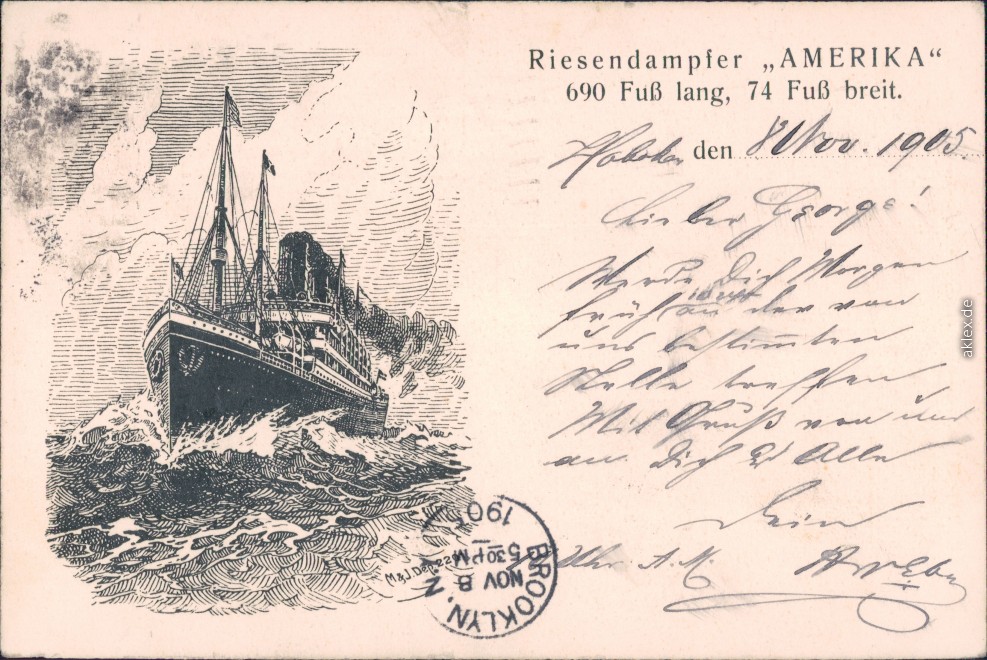 Riesendampfer „AMERIKA“
690 Fuß lang, 74 Fuß breit.
Hoboken den 8 Nov. 1905.
Lieber George!
Werde Dich Morgen
früh an der von
uns bestimmten
Stelle treffen
Mit Gruß von uns
an Dich & Alle
Dein
Uhr A.M.
BROOKLYN, N
NOV 8
5 30 PM
190
aklex.de